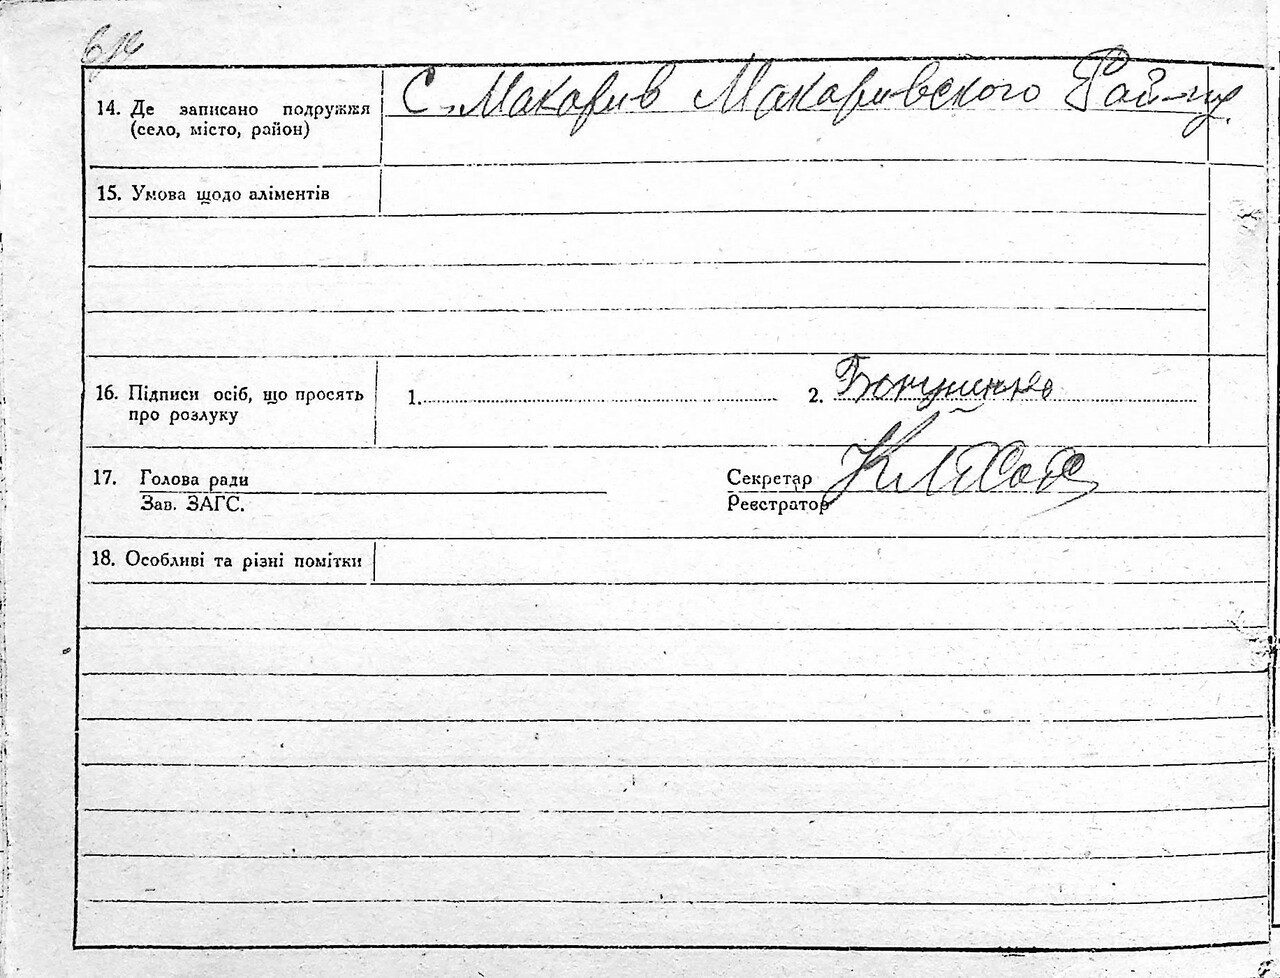 14. Де записано подружжя
(село, місто, район)
С. Макарив Макаривского
15. Умова щодо аліментів
16. Підписи осіб, що просять
про розлуку
1.
2.
17. Голова ради
Зав. ЗАГС.
Секретар
Реєстратор
18. Особливі та різні помітки